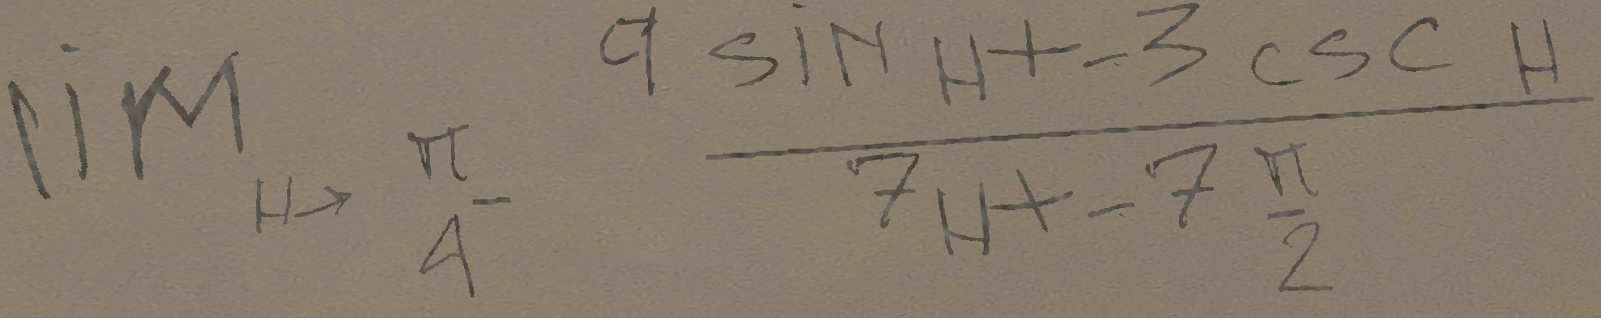 lim_{H→π/4} \frac{9 sin H+-3 csc H}{7H+-7\frac{π}{2}}